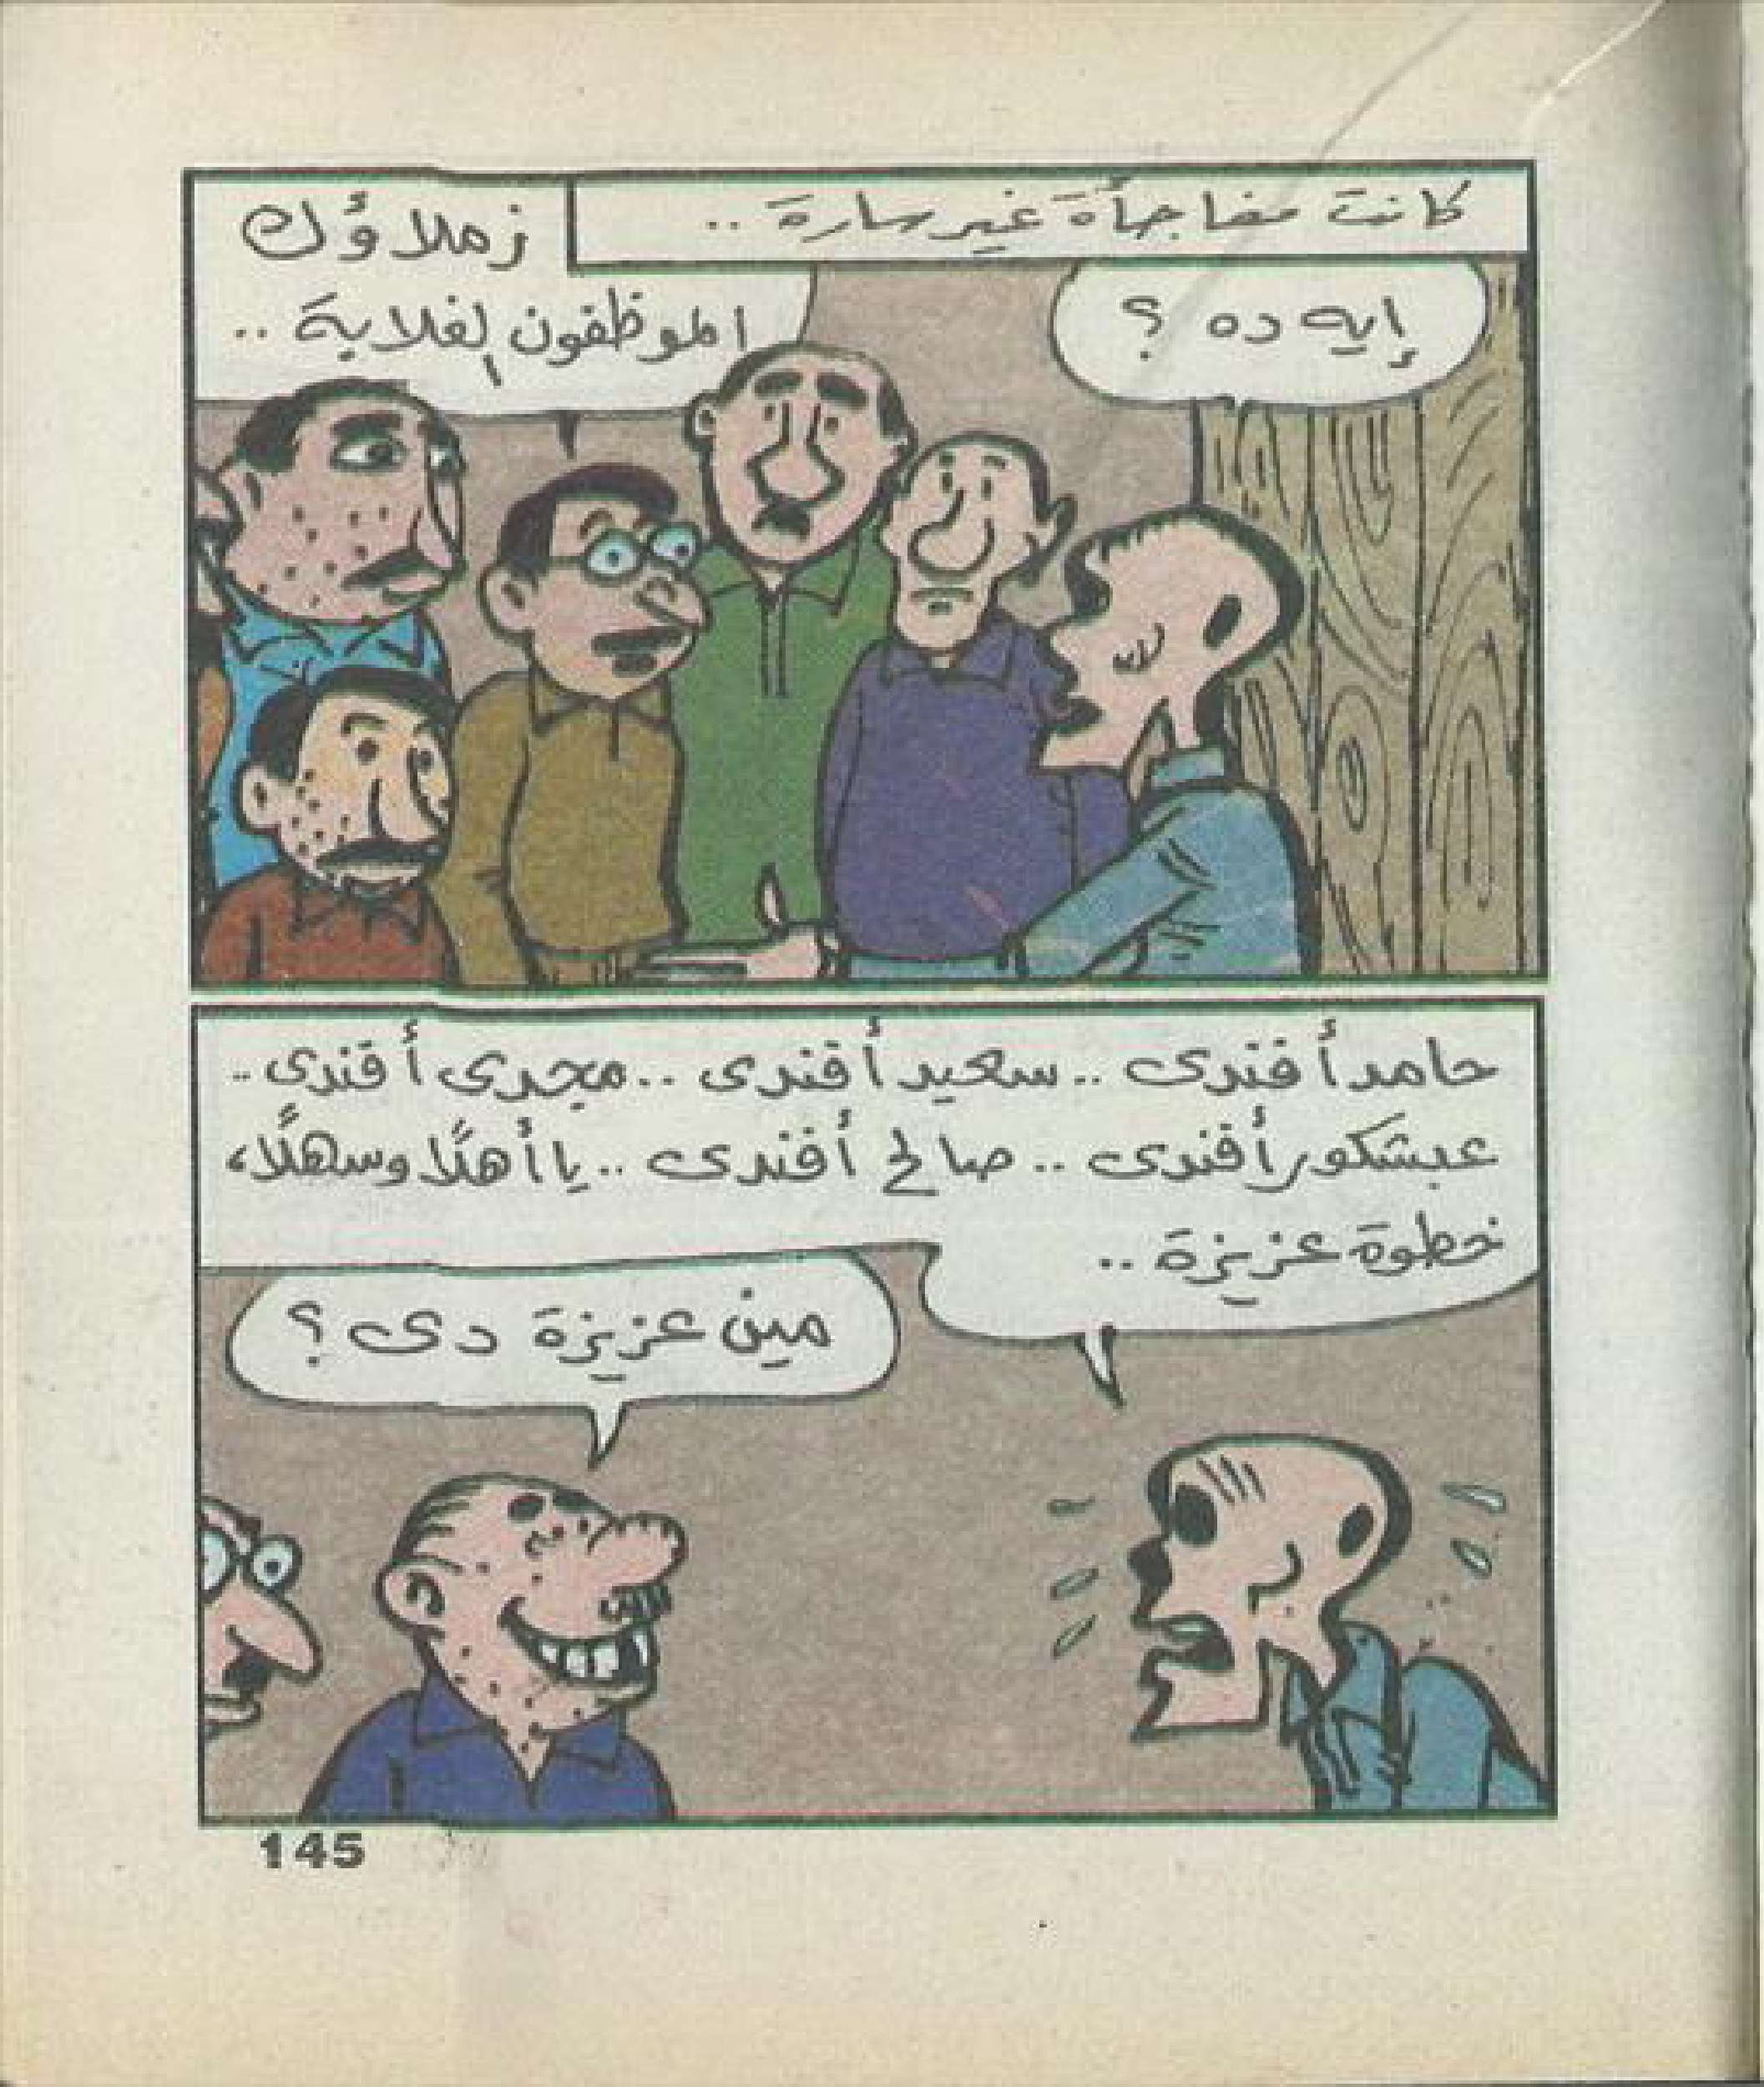 كانت مفاجأة غير سارة ..
إيه ده ؟
زملاؤك
الموظفون الغلابة ..
حامد أفندى .. سعيد أفندى .. مجدى أفندى ..
عبشكور أفندى .. صالح أفندى .. يا أهلًا وسهلًا،
خطوة عزيزة ..
مين عزيزة دى ؟
145